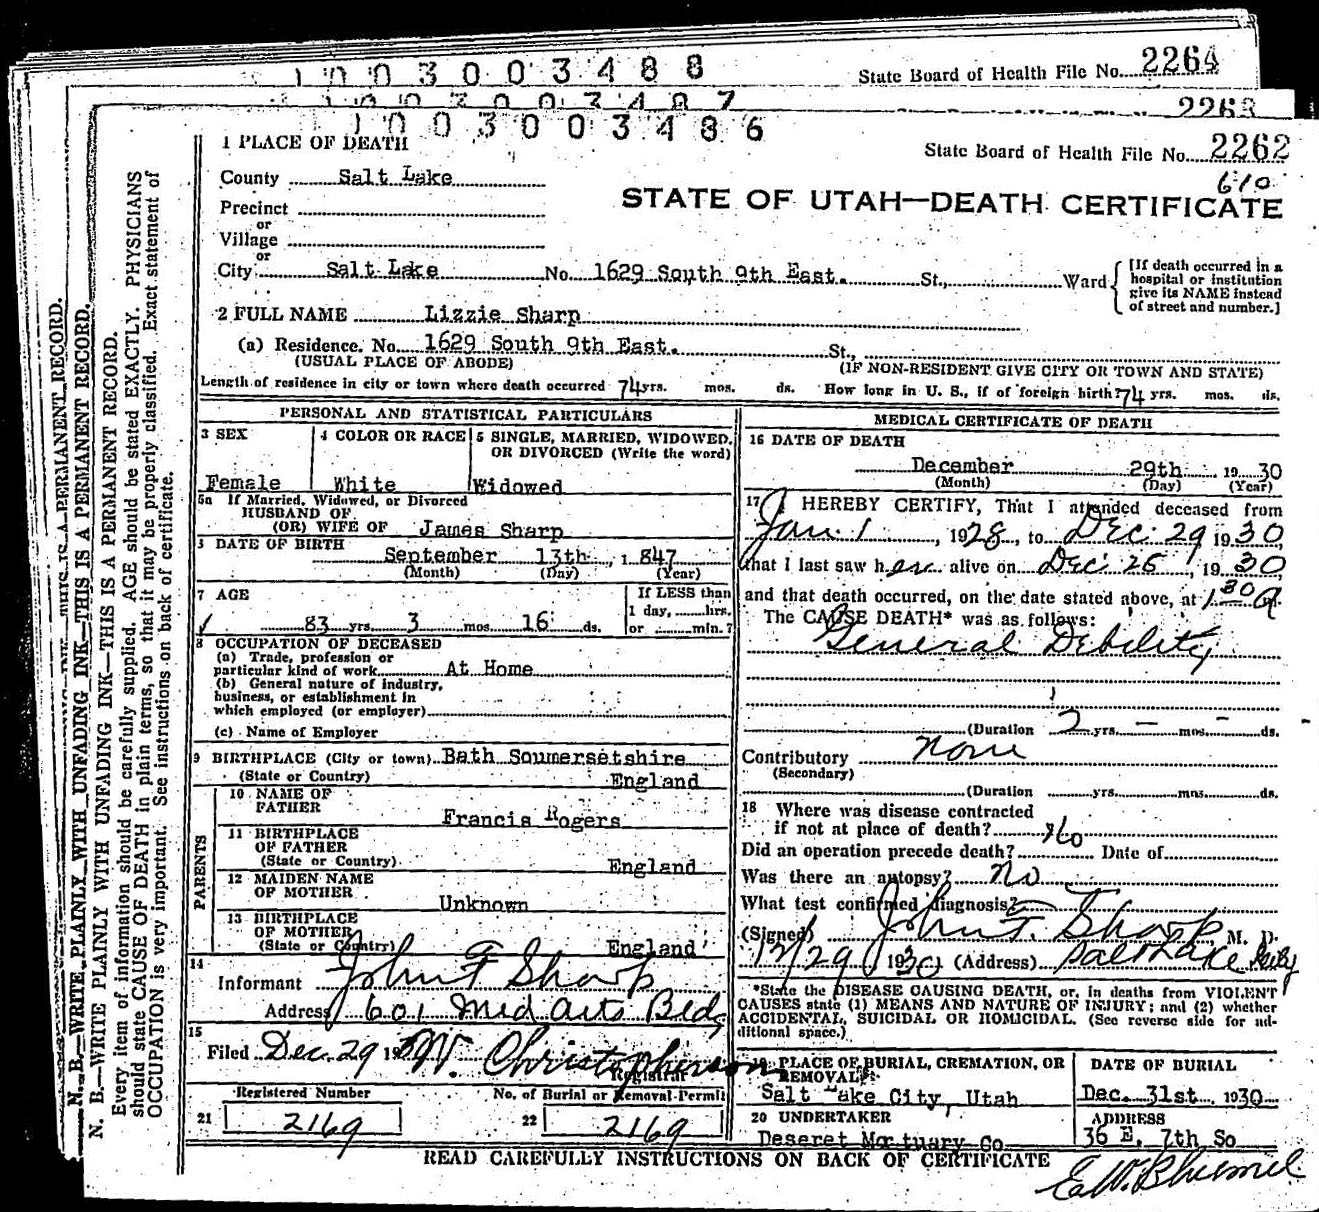 1003003488
State Board of Health File No. 2264
1003003487
2263
1003003486
State Board of Health File No. 2262
610
1 PLACE OF DEATH
STATE OF UTAH—DEATH CERTIFICATE
County Salt Lake
Precinct
or
Village
or
City Salt Lake No. 1629 South 9th East. St., Ward
[If death occurred in a hospital or institution give its NAME instead of street and number.]
2 FULL NAME Lizzie Sharp
(a) Residence. No. 1629 South 9th East. St.,
(USUAL PLACE OF ABODE) (IF NON-RESIDENT GIVE CITY OR TOWN AND STATE)
Length of residence in city or town where death occurred 74 yrs. mos. ds. How long in U. S., if of foreign birth? 74 yrs. mos. ds.
PERSONAL AND STATISTICAL PARTICULARS
3 SEX
Female
4 COLOR OR RACE
White
5 SINGLE, MARRIED, WIDOWED, OR DIVORCED (Write the word)
Widowed
5a If Married, Widowed, or Divorced
HUSBAND OF
(OR) WIFE OF James Sharp
DATE OF BIRTH
September 13th, 1847
(Month) (Day) (Year)
7 AGE
83 yrs. 3 mos. 16 ds.
If LESS than
1 day, hrs.
or min.?
8 OCCUPATION OF DECEASED
(a) Trade, profession or
particular kind of work At Home
(b) General nature of industry,
business, or establishment in
which employed (or employer)
(c) Name of Employer
9 BIRTHPLACE (City or town) Bath Soumersetshire
(State or Country) England
PARENTS
10 NAME OF
FATHER
Francis Rogers
11 BIRTHPLACE
OF FATHER
(State or Country) England
12 MAIDEN NAME
OF MOTHER
Unknown
13 BIRTHPLACE
OF MOTHER
(State or Country) England
14
Informant John F Sharp
Address 601 Med Arts Bldg
15
Filed Dec. 29 19 W. Christopherson
Registrar
Registered Number No. of Burial or Removal Permit
21 2169 22 2169
MEDICAL CERTIFICATE OF DEATH
16 DATE OF DEATH
December 29th 1930
(Month) (Day) (Year)
17 I HEREBY CERTIFY, That I attended deceased from
Jan. 1, 1928, to Dec. 29 1930,
that I last saw her alive on Dec. 25, 1930,
and that death occurred, on the date stated above, at 1 30 a.
The CAUSE DEATH* was as follows:
General Debility
(Duration 2 yrs. — mos. - ds.
Contributory none
(Secondary)
(Duration yrs. mos. ds.
18 Where was disease contracted
if not at place of death? No
Did an operation precede death? Date of
Was there an autopsy? no
What test confirmed diagnosis?
(Signed) John F. Sharp M. D.
12/29 1930 (Address) Salt Lake City
*State the DISEASE CAUSING DEATH, or, in deaths from VIOLENT
CAUSES state (1) MEANS AND NATURE OF INJURY; and (2) whether
ACCIDENTAL, SUICIDAL OR HOMICIDAL. (See reverse side for ad-
ditional space.)
19 PLACE OF BURIAL, CREMATION, OR
REMOVAL
Salt Lake City, Utah
DATE OF BURIAL
Dec. 31st, 1930
20 UNDERTAKER
Deseret Mortuary Co
ADDRESS
36 E. 7th So
READ CAREFULLY INSTRUCTIONS ON BACK OF CERTIFICATE
N. B.—WRITE PLAINLY WITH UNFADING INK—THIS IS A PERMANENT RECORD.
N. B.—WRITE PLAINLY WITH UNFADING INK—THIS IS A PERMANENT RECORD.
Every item of information should be carefully supplied. AGE should be stated EXACTLY. PHYSICIANS
should state CAUSE OF DEATH in plain terms, so that it may be properly classified. Exact statement of
OCCUPATION is very important. See instructions on back of certificate.